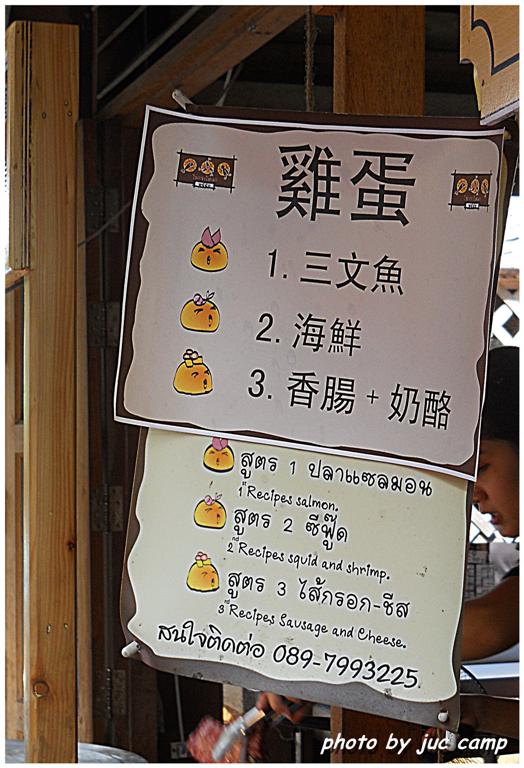 雞蛋
1. 三文魚
2. 海鮮
3. 香腸 + 奶酪
สูตร 1 ปลาแซลมอน
1st Recipes salmon.
สูตร 2 ซีฟู๊ด
2nd Recipes squid and shrimp.
สูตร 3 ไส้กรอก-ชีส
3rd Recipes Sausage and Cheese.
สนใจติดต่อ 089-7993225
photo by juc camp